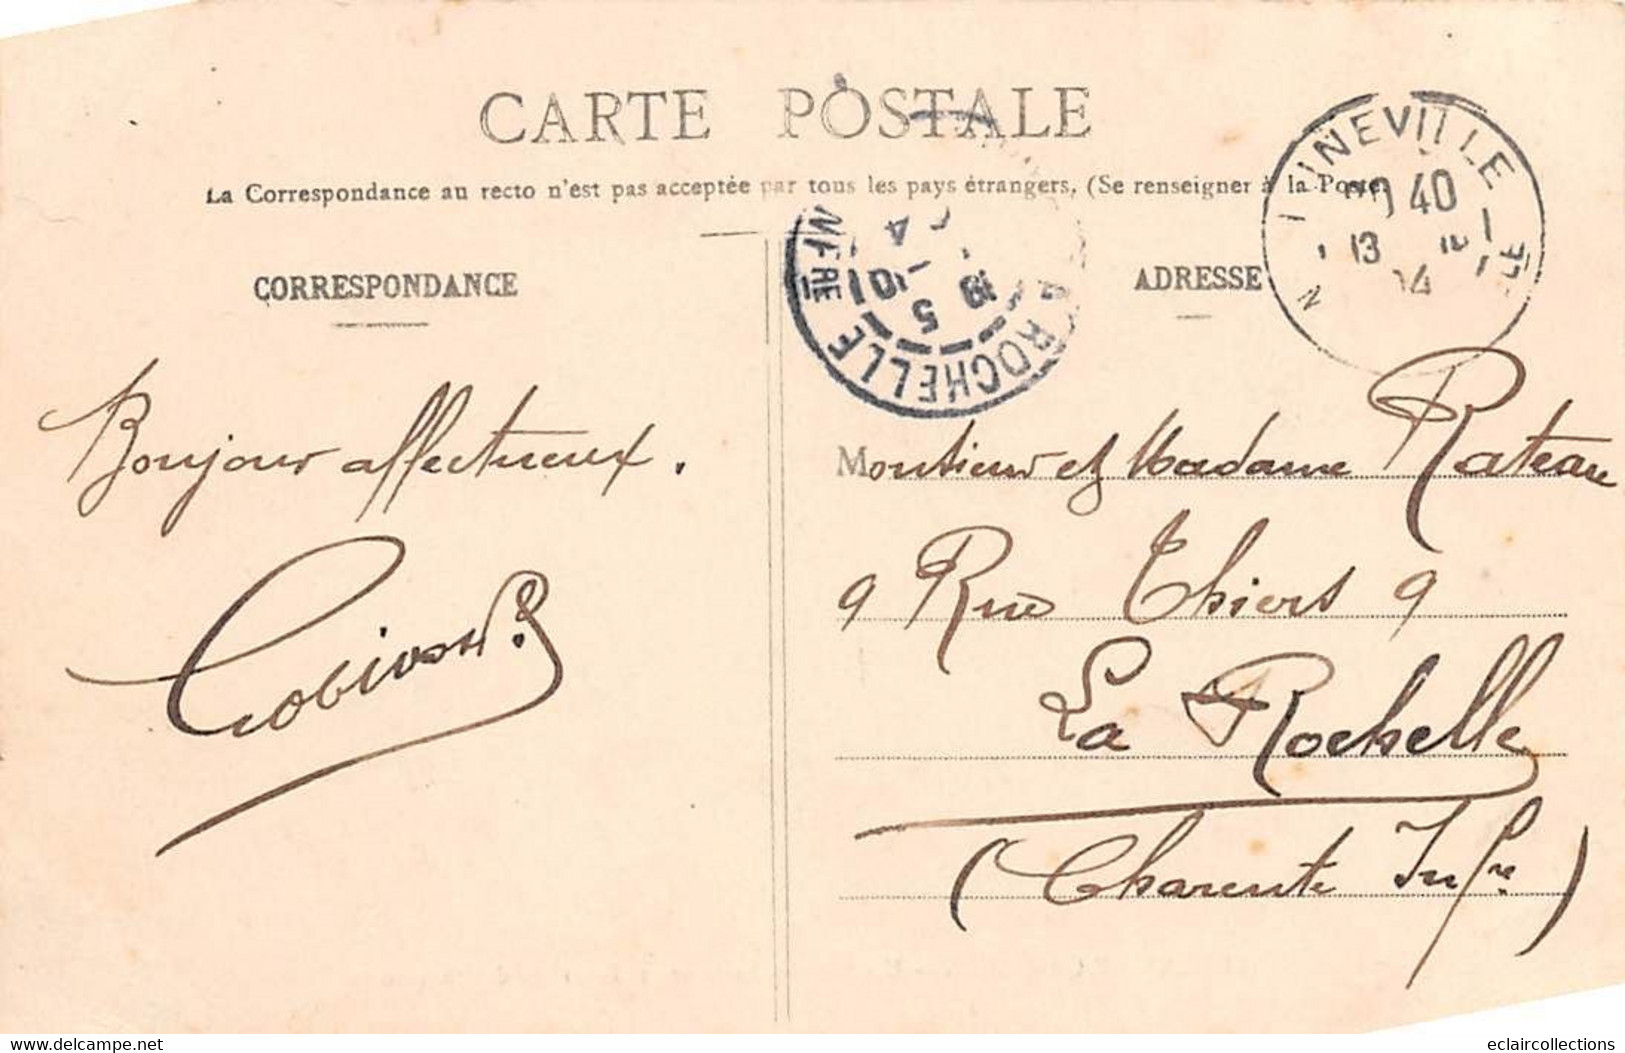 CARTE POSTALE
La Correspondance au recto n'est pas acceptée par tous les pays étrangers. (Se renseigner à la Poste)
CORRESPONDANCE
Bonjour affectueux.
ADRESSE
LUNEVILLE
40
13
ROCHELLE
INFRE
5
Monsieur et Madame Rateau
9 Rue Thiers 9
La Rochelle
(Charente Infre)
www.delcampe.net
eclaircollections